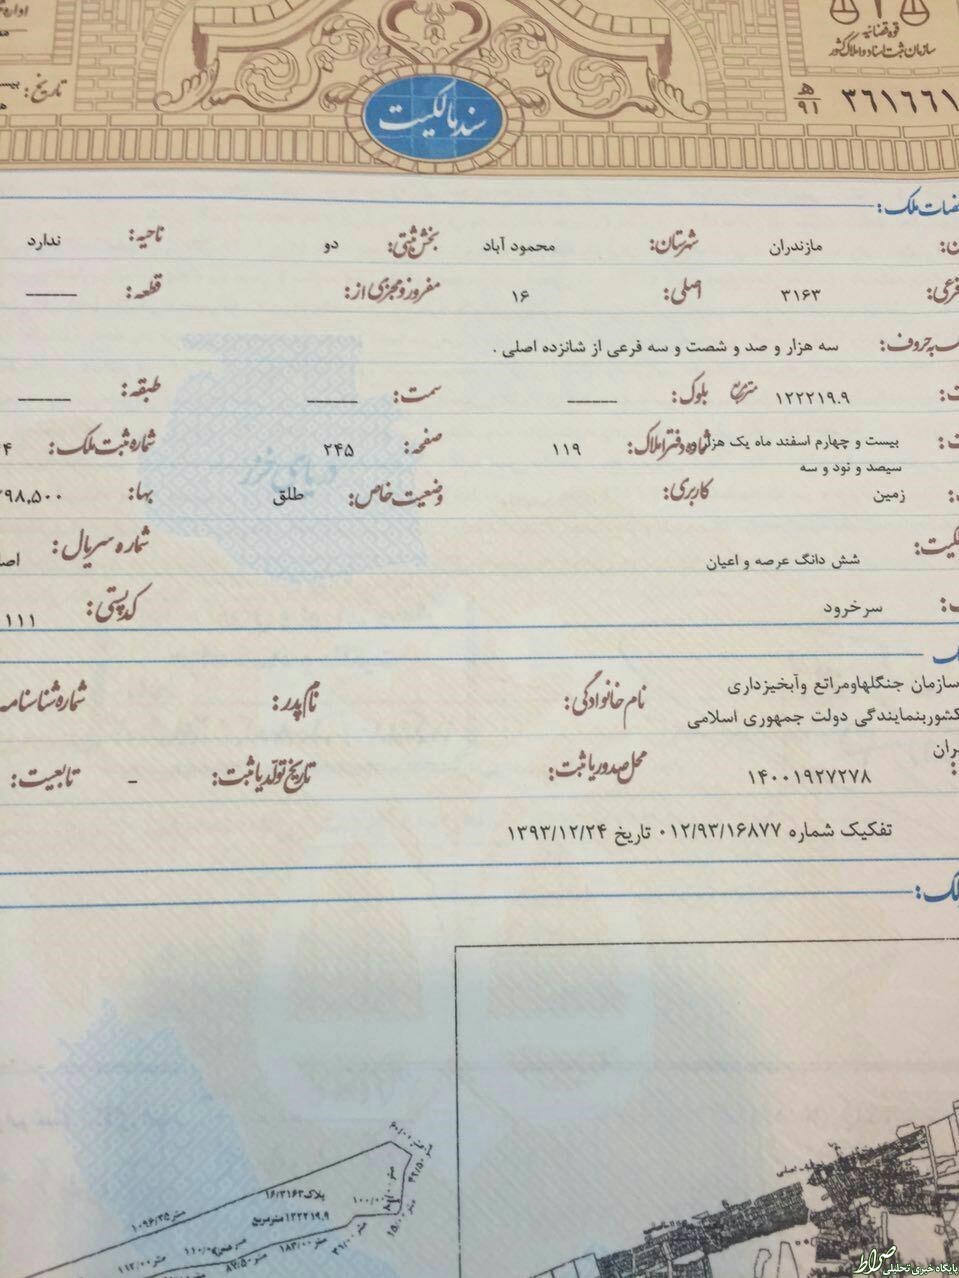 قوه قضائیه
سازمان ثبت اسناد و املاک کشور
۳۶۱۶۶۱
هـ
۹۱
تاریخ:
سند مالکیت
ملک:
مازندران شهرستان: محمود آباد بخش ثبتی: دو ناحیه: ندارد
۳۱۶۳ اصلی: ۱۶ مفروز و مجزی از: قطعه: ــــــ
به حروف: سه هزار و صد و شصت و سه فرعی از شانزده اصلی .
۱۲۲۲۱۹.۹ متر مربع بلوک: ــــــ سمت: ــــــ طبقه: ــــــ
بیست و چهارم اسفند ماه یک هزار سیصد و نود و سه شماره دفتر املاک: ۱۱۹ صفحه: ۲۴۵ شماره ثبت ملک:
زمین کاربری: وضعیت خاص: طلق بها: ۹۸,۵۰۰
شش دانگ عرصه و اعیان شماره سریال:
سرخرود کد پستی: ۱۱۱
سازمان جنگلهاومراتع وآبخیزداری
کشوربنمایندگی دولت جمهوری اسلامی
نام خانوادگی: نام پدر: شماره شناسنامه
۱۴۰۰۱۹۲۷۲۷۸ محل صدور یا ثبت: تاریخ تولد یا ثبت: - تابعیت:
تفکیک شماره ۰۱۲/۹۳/۱۶۸۷۷ تاریخ ۱۳۹۳/۱۲/۲۴
پلاک۱۶/۳۱۶۳
۱۲۲۲۱۹.۹مترمربع
متر۱۰۹۶/۲۵
متر۱۱۲/۰۰
متر۸۷/۵۰
متر۱۸۲/۰۰
صراط
پایگاه خبری تحلیلی